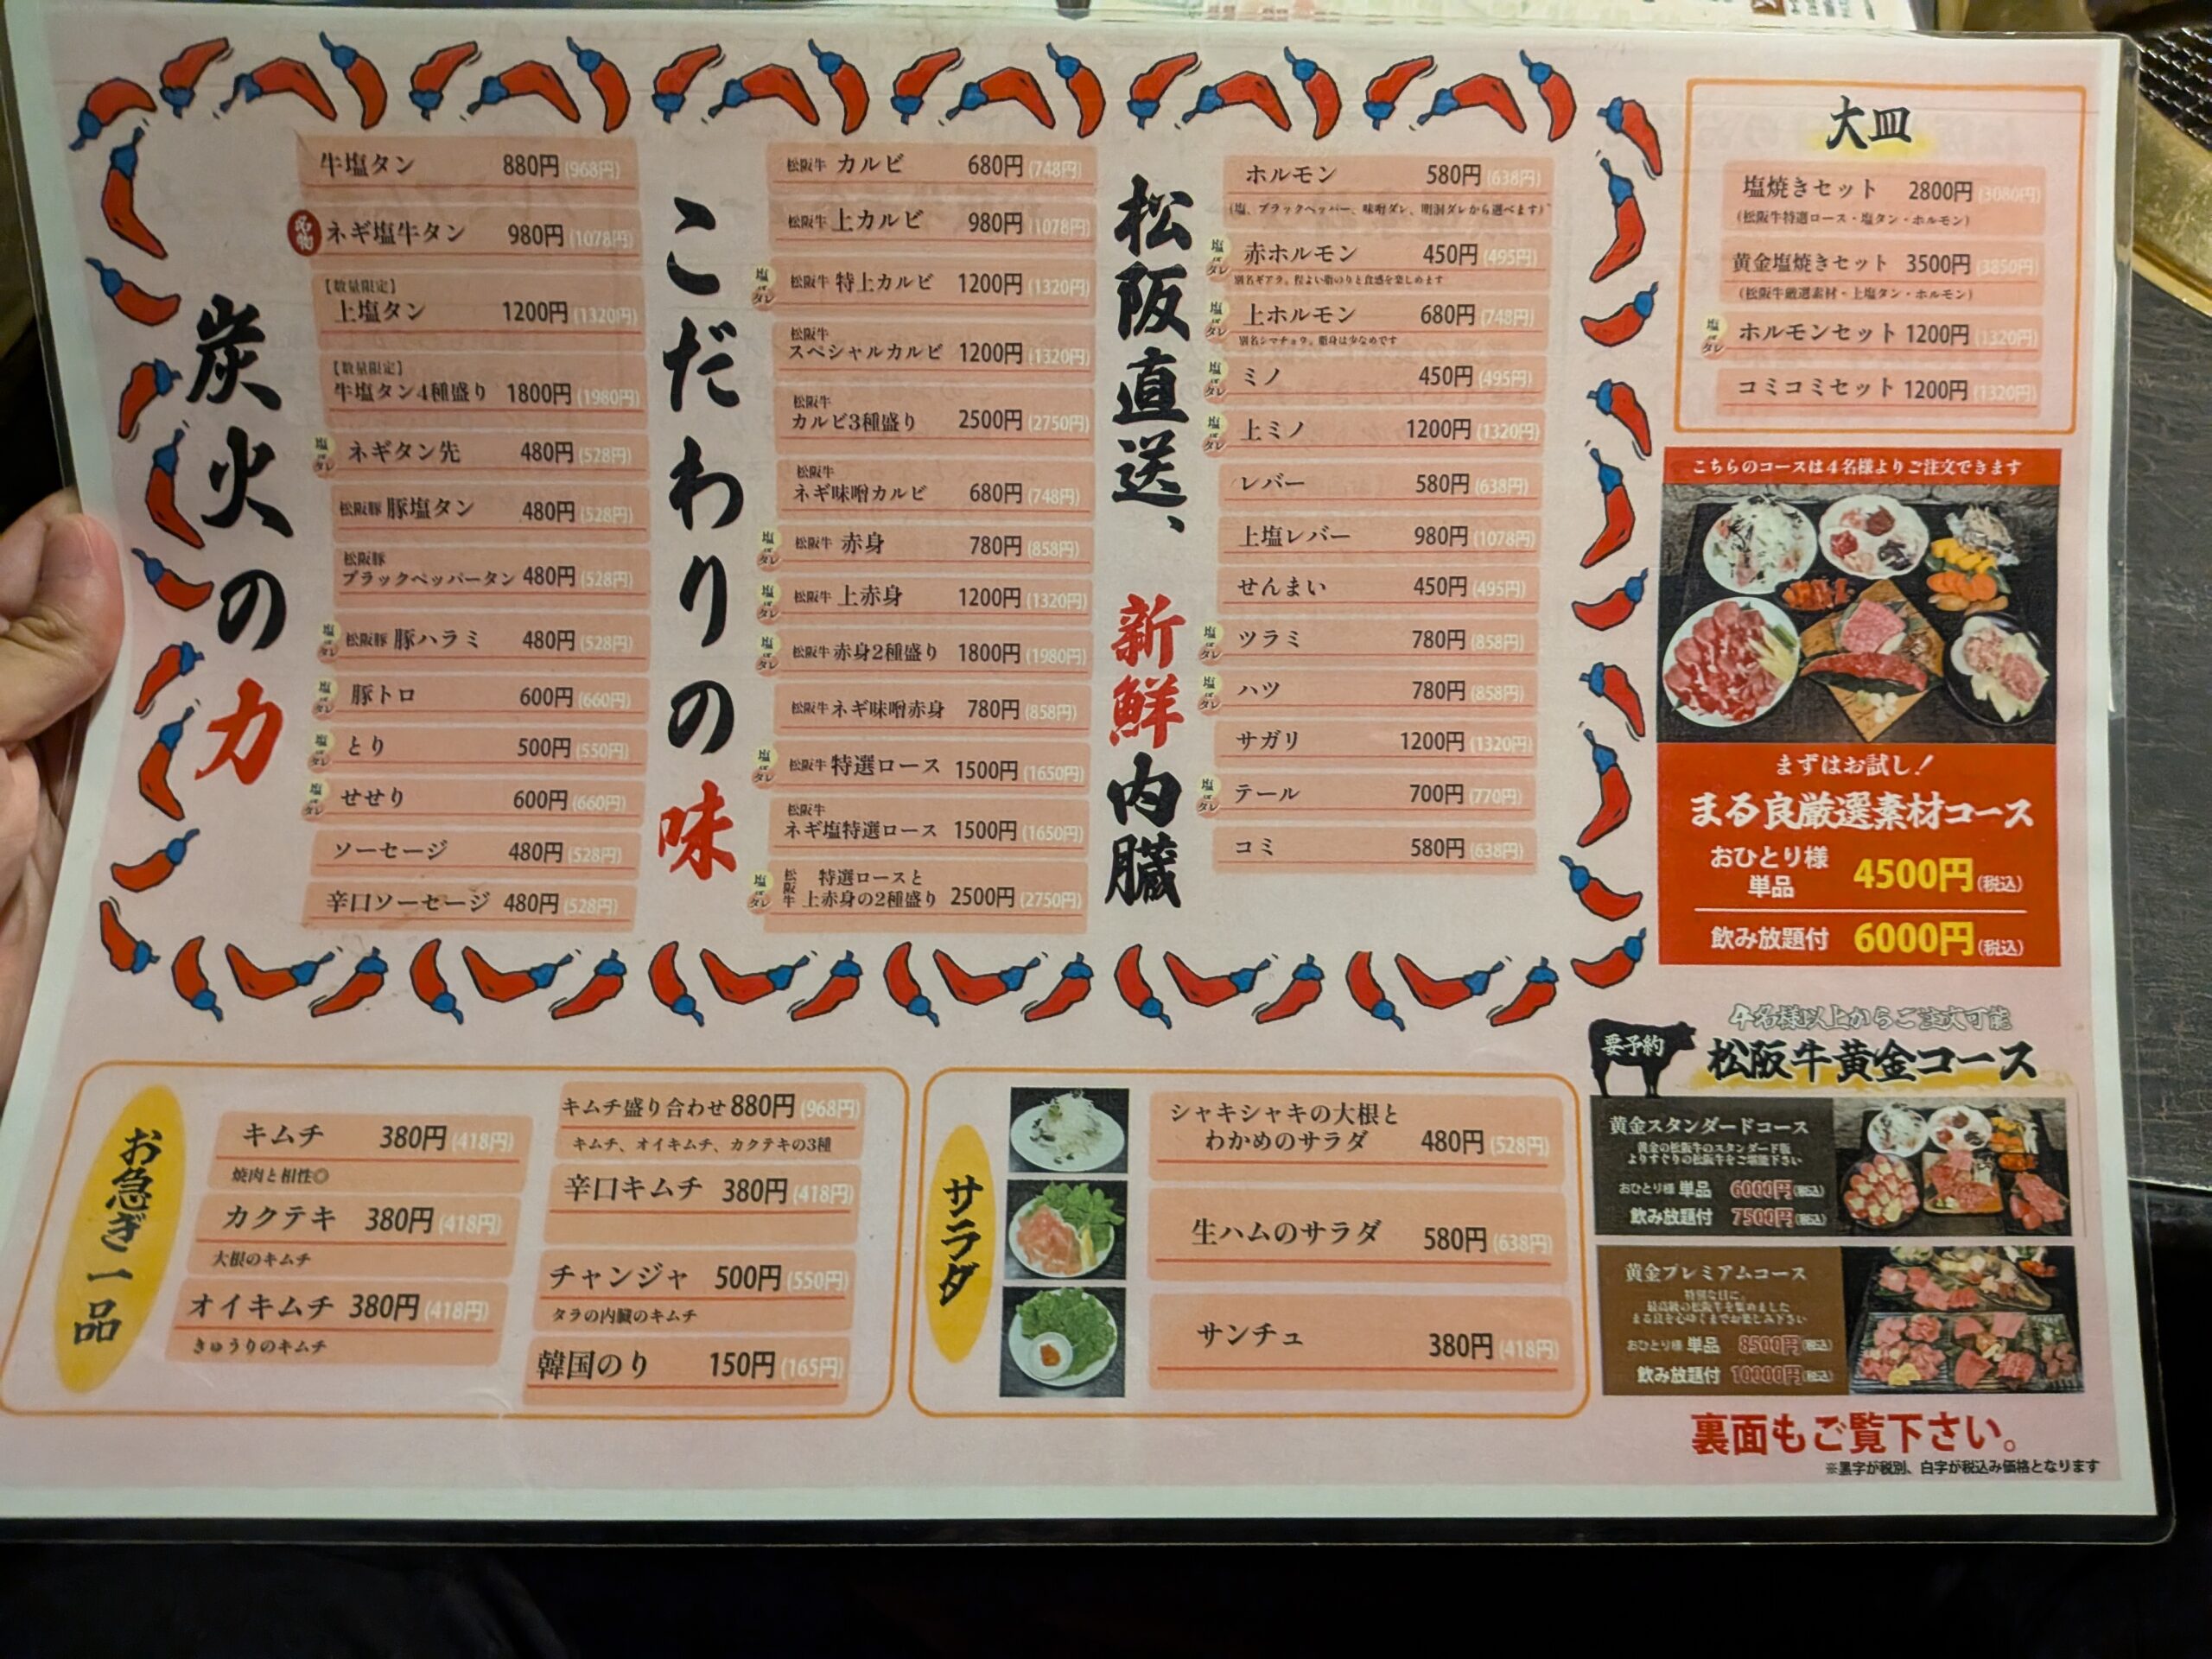 炭火の力
牛塩タン 880円(968円)
名物 ネギ塩牛タン 980円(1078円)
【数量限定】
上塩タン 1200円(1320円)
【数量限定】
牛塩タン4種盛り 1800円(1980円)
塩 or タレ ネギタン先 480円(528円)
松阪豚 豚塩タン 480円(528円)
松阪豚
ブラックペッパータン 480円(528円)
塩 or タレ 松阪豚 豚ハラミ 480円(528円)
塩 or タレ 豚トロ 600円(660円)
塩 or タレ とり 500円(550円)
塩 or タレ せせり 600円(660円)
ソーセージ 480円(528円)
辛口ソーセージ 480円(528円)
こだわりの味
松阪牛 カルビ 680円(748円)
松阪牛 上カルビ 980円(1078円)
塩 or タレ 松阪牛 特上カルビ 1200円(1320円)
松阪牛
スペシャルカルビ 1200円(1320円)
松阪牛
カルビ3種盛り 2500円(2750円)
松阪牛
ネギ味噌カルビ 680円(748円)
塩 or タレ 松阪牛 赤身 780円(858円)
塩 or タレ 松阪牛 上赤身 1200円(1320円)
塩 or タレ 松阪牛 赤身2種盛り 1800円(1980円)
松阪牛 ネギ味噌赤身 780円(858円)
塩 or タレ 松阪牛 特選ロース 1500円(1650円)
松阪牛
ネギ塩特選ロース 1500円(1650円)
塩 or タレ 松阪牛 特選ロースと
上赤身の2種盛り 2500円(2750円)
松阪直送、新鮮内臓
ホルモン 580円(638円)
(塩、ブラックペッパー、味噌ダレ、明洞ダレから選べます)
塩 or タレ 赤ホルモン 450円(495円)
別名ギアラ。程よい脂のりと食感を楽しめます
塩 or タレ 上ホルモン 680円(748円)
別名シマチョウ。脂身は少なめです
塩 or タレ ミノ 450円(495円)
塩 or タレ 上ミノ 1200円(1320円)
レバー 580円(638円)
上塩レバー 980円(1078円)
せんまい 450円(495円)
塩 or タレ ツラミ 780円(858円)
塩 or タレ ハツ 780円(858円)
サガリ 1200円(1320円)
塩 or タレ テール 700円(770円)
コミ 580円(638円)
大皿
塩焼きセット 2800円(3080円)
(松阪牛特選ロース・塩タン・ホルモン)
黄金塩焼きセット 3500円(3850円)
(松阪牛厳選素材・上塩タン・ホルモン)
塩 or タレ ホルモンセット 1200円(1320円)
コミコミセット 1200円(1320円)
こちらのコースは4名様よりご注文できます
まずはお試し!
まる良厳選素材コース
おひとり様
単品 4500円(税込)
飲み放題付 6000円(税込)
4名様以上からご注文可能
要予約 松阪牛黄金コース
黄金スタンダードコース
黄金の松阪牛のスタンダード版
よりすぐりの松阪牛をご堪能下さい
おひとり様 単品 6000円(税込)
飲み放題付 7500円(税込)
黄金プレミアムコース
特別な日に。
最高級の松阪牛を集めました
まる良を心ゆくまでお楽しみ下さい
おひとり様 単品 8500円(税込)
飲み放題付 10000円(税込)
裏面もご覧下さい。
※黒字が税別、白字が税込み価格となります
お急ぎ一品
キムチ 380円(418円)
焼肉と相性◎
カクテキ 380円(418円)
大根のキムチ
オイキムチ 380円(418円)
きゅうりのキムチ
キムチ盛り合わせ 880円(968円)
キムチ、オイキムチ、カクテキの3種
辛口キムチ 380円(418円)
チャンジャ 500円(550円)
タラの内臓のキムチ
韓国のり 150円(165円)
サラダ
シャキシャキの大根と
わかめのサラダ 480円(528円)
生ハムのサラダ 580円(638円)
サンチュ 380円(418円)